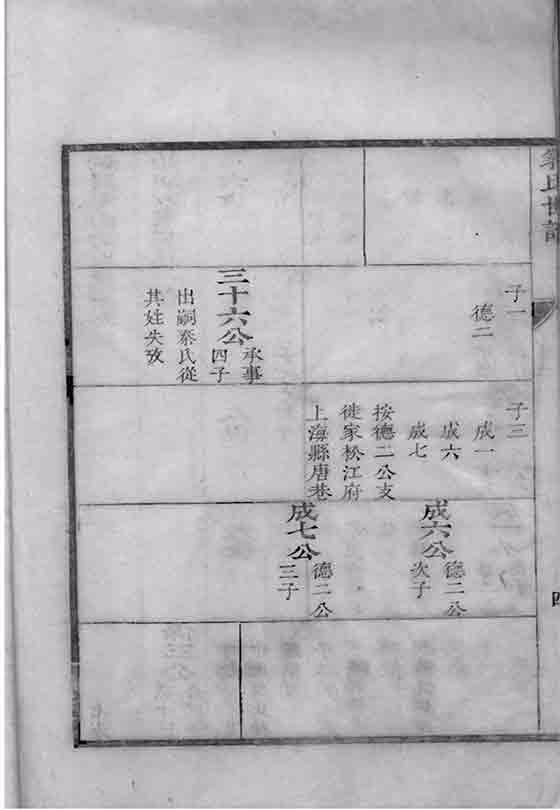 子一
德二
三十六公
承事
四子
出嗣秦氏從
其姓失攷
子三
成一
成六
成七
按德二公支
徙家松江府
上海縣唐巷
成六公
德二公
次子
成七公
德二公
三子
四